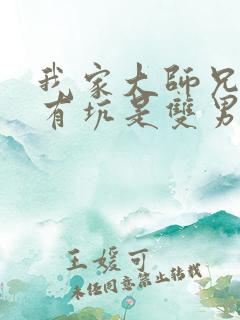 我家大師兄
有坑是雙男
王媛可
未经同意禁止转载